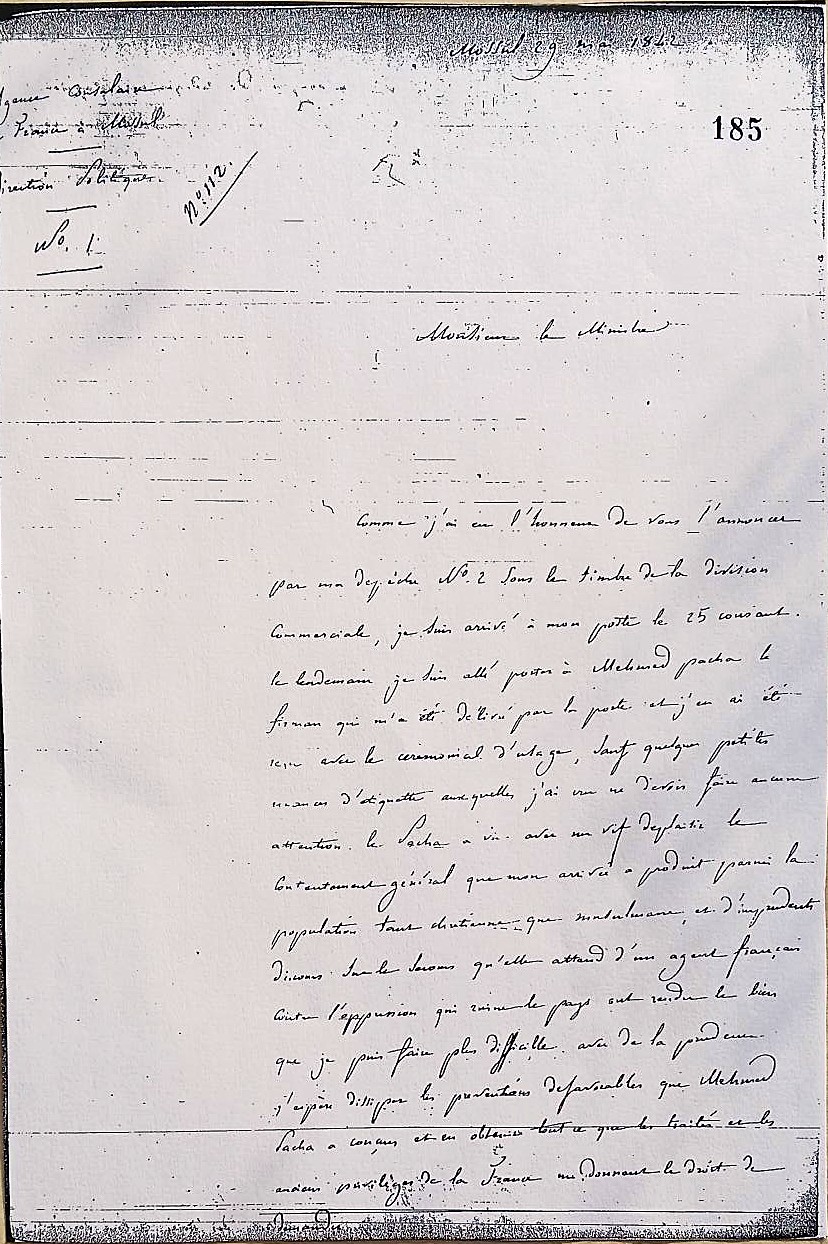 Mossul 29 mai 1842
Agence Consulaire
France à Mossul
185
Direction Politique.
N°. 112.
N°. 1
Monsieur le Ministre
Comme j'ai eu l'honneur de vous l'annoncer
par ma depêche N°. 2 sous le timbre de la division
Commerciale, je suis arrivé à mon poste le 25 courant.
le lendemain je suis allé porter à Mehmed pacha le
firman qui m'a été délivré par la porte et j'en ai été
reçu avec le ceremonial d'usage, sauf quelques petites
nuances d'étiquette auxquelles j'ai cru ne devoir faire aucune
attention. le Pacha a vu avec un vif deplaisir le
Contentement général que mon arrivée a produit parmi la
population tant chrétienne que musulmane et d'imprudents
discours sur le secours qu'elle attend d'un agent français
contre l'oppression qui ruine le pays ont rendu le bien
que je puis faire plus difficille. avec de la prudence
j'espère dissiper les preventions defavorables que Mehmed
Pacha a conçues et en obtenir tout ce que les traités et les
anciens privilèges de la France me donnent le droit de
demander